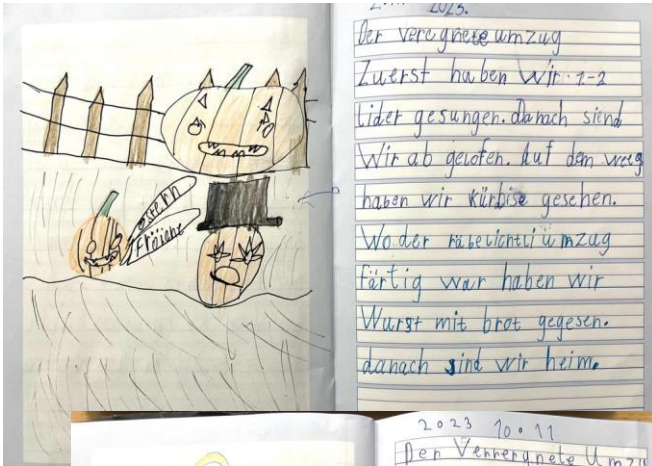 2023.
Der veregnete umzug
Zuerst haben wir 1-2
lider gesungen. Danach siend
Wir ab gelofen. Auf dem weeg
haben wir kürbise gesehen.
Wo der räbelichtli ümzug
färtig war haben wir
Wurst mit brot gegesen.
danach sind wir heim.
ostern
Fröiene
2023 10.11
Der Verregnete Umzu